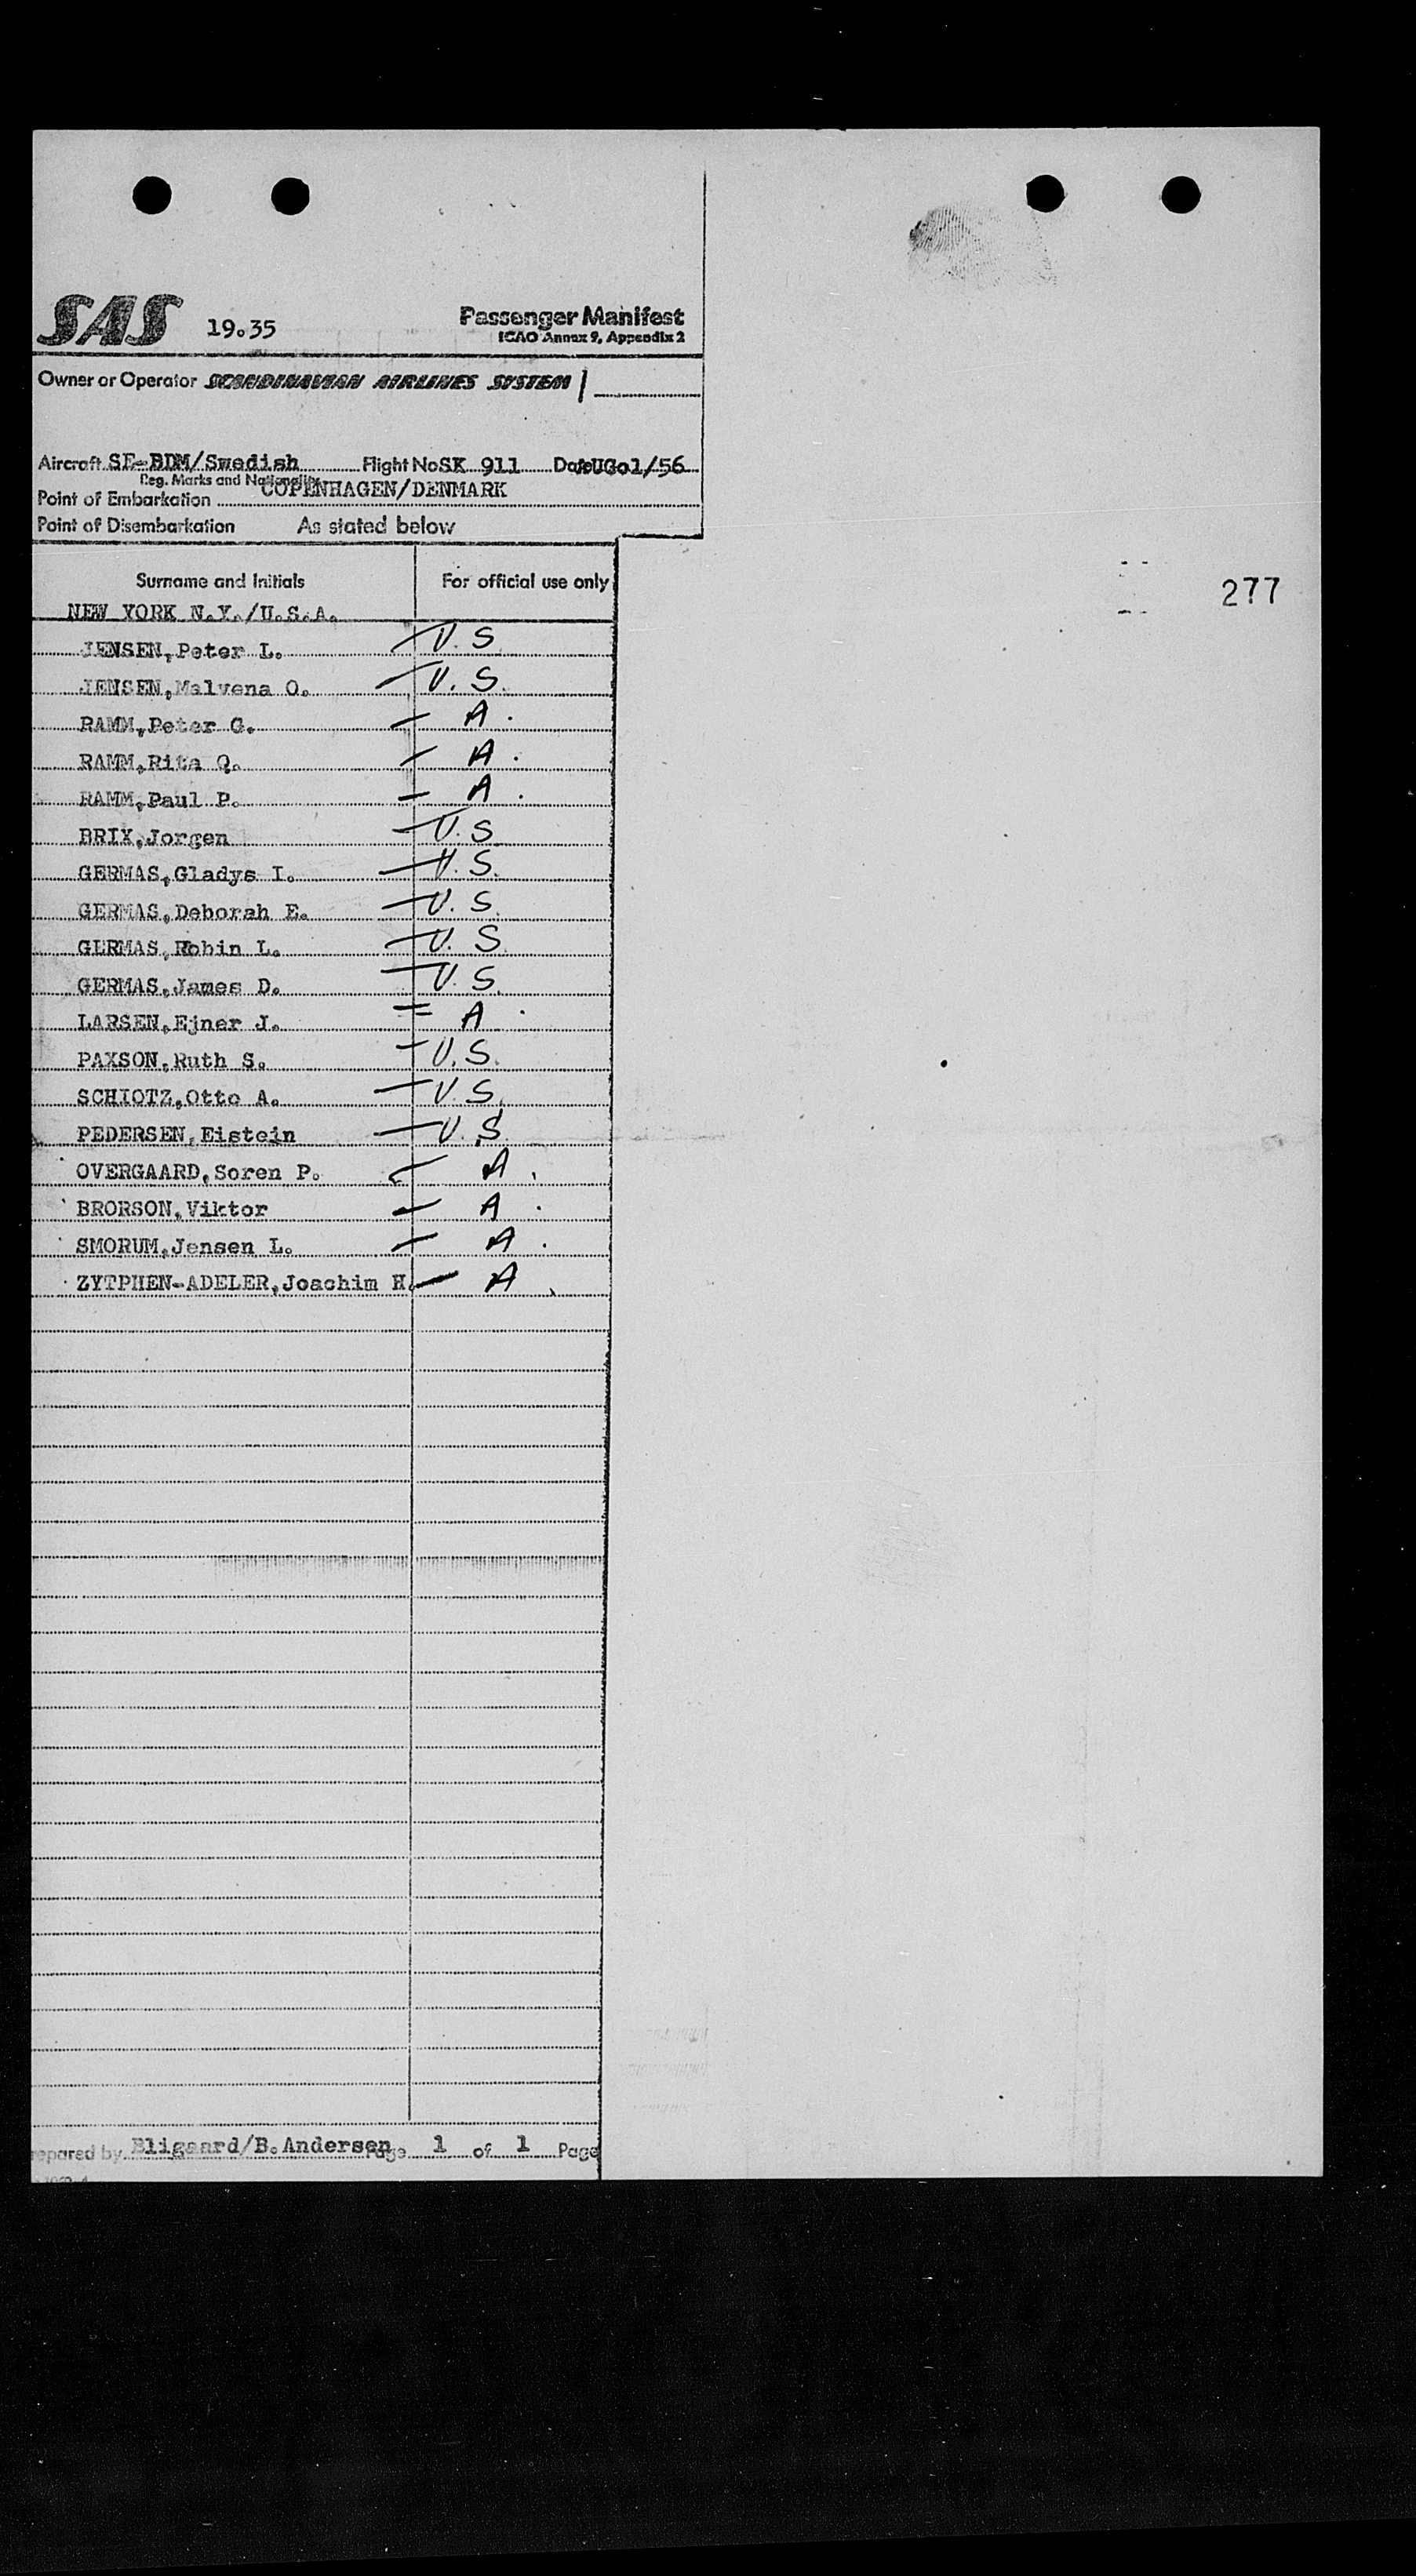 SAS 19.35 Passenger Manifest
ICAO Annex 9, Appendix 2
Owner or Operator SCANDINAVIAN AIRLINES SYSTEM
Aircraft SE-BDM/Swedish Flight No SK 911 Date UG01/56
Reg. Marks and Nationality
Point of Embarkation COPENHAGEN/DENMARK
Point of Disembarkation As stated below
277
Surname and Initials For official use only
NEW YORK N.Y./U.S.A.
JENSEN,Peter L. U.S.
JENSEN,Malvena O. U.S.
RAMM,Peter G. A.
RAMM,Rita Q. A.
RAMM,Paul P. A.
BRIX,Jorgen U.S
GERMAS,Gladys I. U.S.
GERMAS,Deborah E. U.S.
GERMAS,Robin L. U.S.
GERMAS,James D. U.S.
LARSEN,Ejner J. A.
PAXSON,Ruth S. U.S.
SCHIOTZ,Otto A. U.S.
PEDERSEN,Eistein U.S.
OVERGAARD,Soren P. A.
BRORSON,Viktor A.
SMORUM,Jensen L. A.
ZYTPHEN-ADELER,Joachim H. A
epared by Bligaard/B.Andersen Page 1 of 1 Page